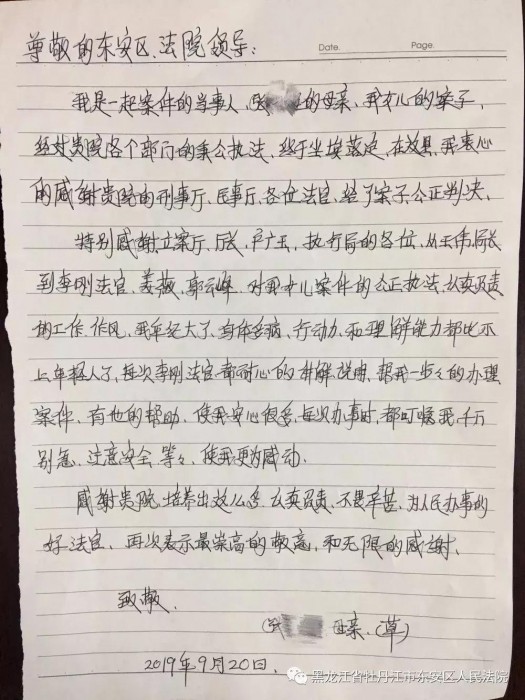 Date.  Page.
尊敬的东安区、法院领导：
我是一起案件的当事人、张 的母亲、我女儿的案子、
经过贵院各个部门的秉公执法、终于尘埃落定、在这里、我衷心
的感谢贵院的刑事厅、民事厅、各位法官、给了案子公正判决、
特别感谢立案厅、厅长、卢广玉、执行局的各位、从王伟局长
到李刚法官、姜薇、郭云峰、对我女儿案件的公正执法、认真负责
的工作、作风、我年纪大了、身体多病、行动力、和理解能力都比不
上年轻人了、每次李刚法官都耐心的讲解说明、帮我一步々的办理
案件、有他的帮助、使我安心很多、每次办事时、都叮嘱我、千万
别急、注意安全、等々、使我更为感动、
感谢贵院、培养出这么多、认真负责、不畏辛苦、为人民办事的
好法官、再次表示最崇高的敬意、和无限的感谢、
致敬、
张 母亲、（草）
2019年9月20日、
黑龙江省牡丹江市东安区人民法院